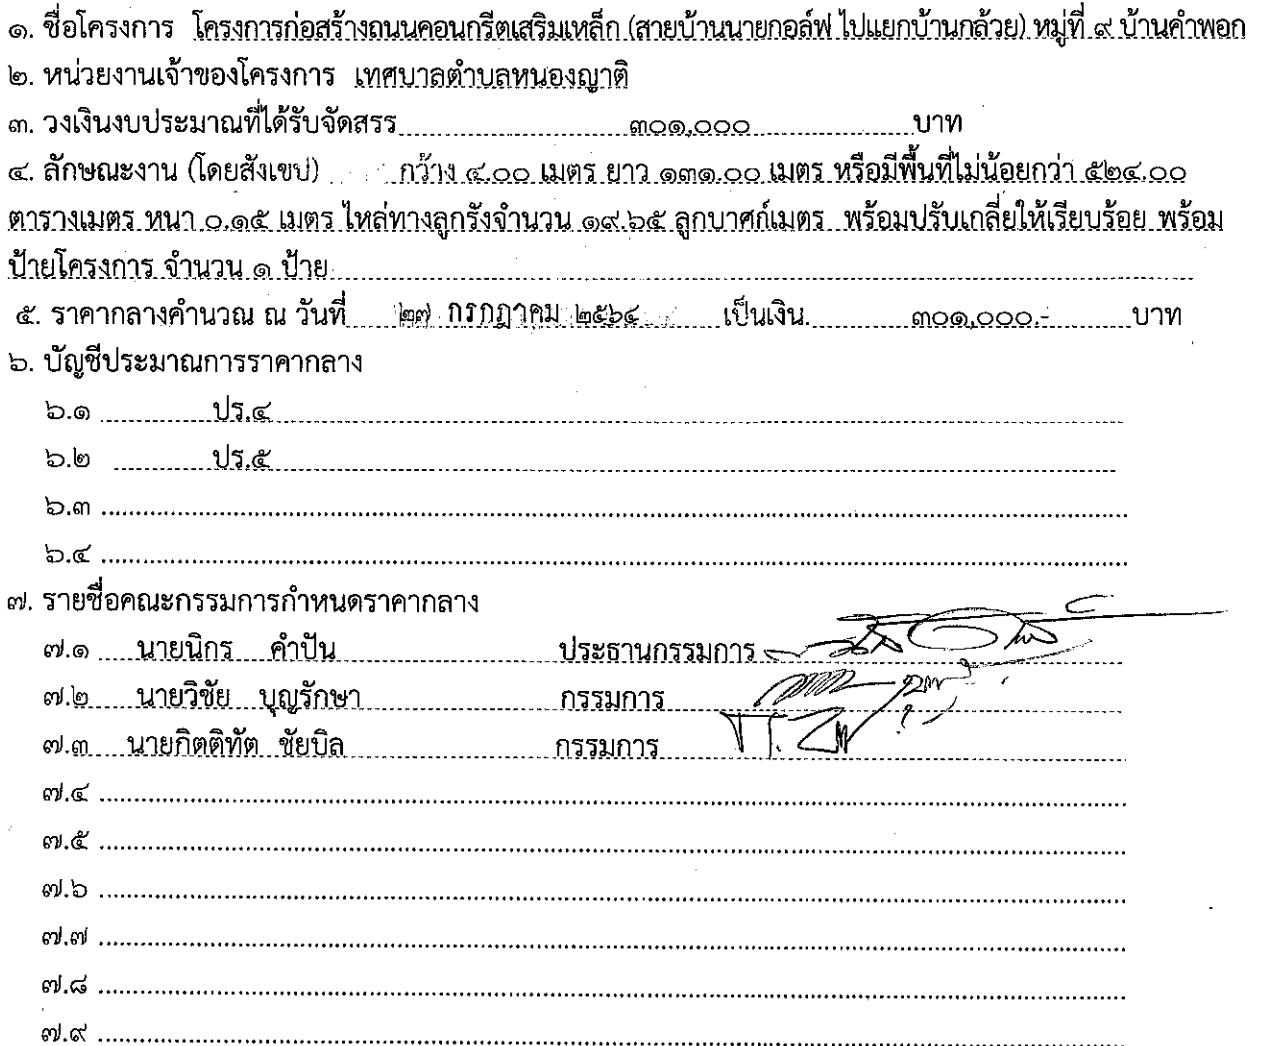 ๑. ชื่อโครงการ โครงการก่อสร้างถนนคอนกรีตเสริมเหล็ก (สายบ้านนายกอล์ฟ ไปแยกบ้านกล้วย) หมู่ที่ ๙ บ้านคำพอก
๒. หน่วยงานเจ้าของโครงการ เทศบาลตำบลหนองญาติ
๓. วงเงินงบประมาณที่ได้รับจัดสรร ๓๐๑,๐๐๐ บาท
๔. ลักษณะงาน (โดยสังเขป) กว้าง ๔.๐๐ เมตร ยาว ๑๓๑.๐๐ เมตร หรือมีพื้นที่ไม่น้อยกว่า ๕๒๔.๐๐
ตารางเมตร หนา ๐.๑๕ เมตร ไหล่ทางลูกรังจำนวน ๑๙.๖๕ ลูกบาศก์เมตร พร้อมปรับเกลี่ยให้เรียบร้อย พร้อม
ป้ายโครงการ จำนวน ๑ ป้าย
๕. ราคากลางคำนวณ ณ วันที่ ๒๗ กรกฎาคม ๒๕๖๔ เป็นเงิน ๓๐๑,๐๐๐.- บาท
๖. บัญชีประมาณการราคากลาง
๖.๑ ปร.๔
๖.๒ ปร.๕
๖.๓
๖.๔
๗. รายชื่อคณะกรรมการกำหนดราคากลาง
๗.๑ นายนิกร คำปัน ประธานกรรมการ
๗.๒ นายวิชัย บุญรักษา กรรมการ
๗.๓ นายกิตติทัต ชัยบิล กรรมการ
๗.๔
๗.๕
๗.๖
๗.๗
๗.๘
๗.๙